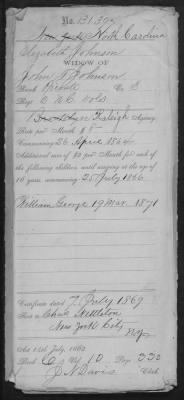 No. 131.395
New York North Carolina
Elizabeth Johnson
WIDOW OF
John T Johnson
Rank Private Co. B
Regt 2 N C Vols
Brooklyn Raleigh Agency
Rate per Month $8
Commencing 26 April 1864
Additional sum of $2 per Month for each of
the following children until arriving at the age of
16 years, commencing 25 July 1866
William George 19 Mar. 1871
Certificate dated 7 July 1869
Sent to
New York City
N.Y.
Act 14th July, 1862
Book Vol. 10 Page 230
J N Davis Clerk